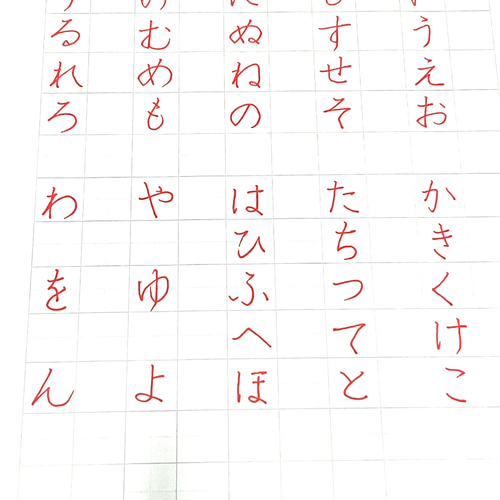 うえお
かきくけこ
すせそ
たちつてと
ぬねの
はひふへほ
むめも
やゆよ
るれろ
わをん